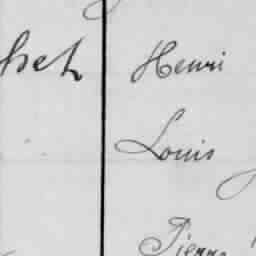 Henri
Louis
Pierre